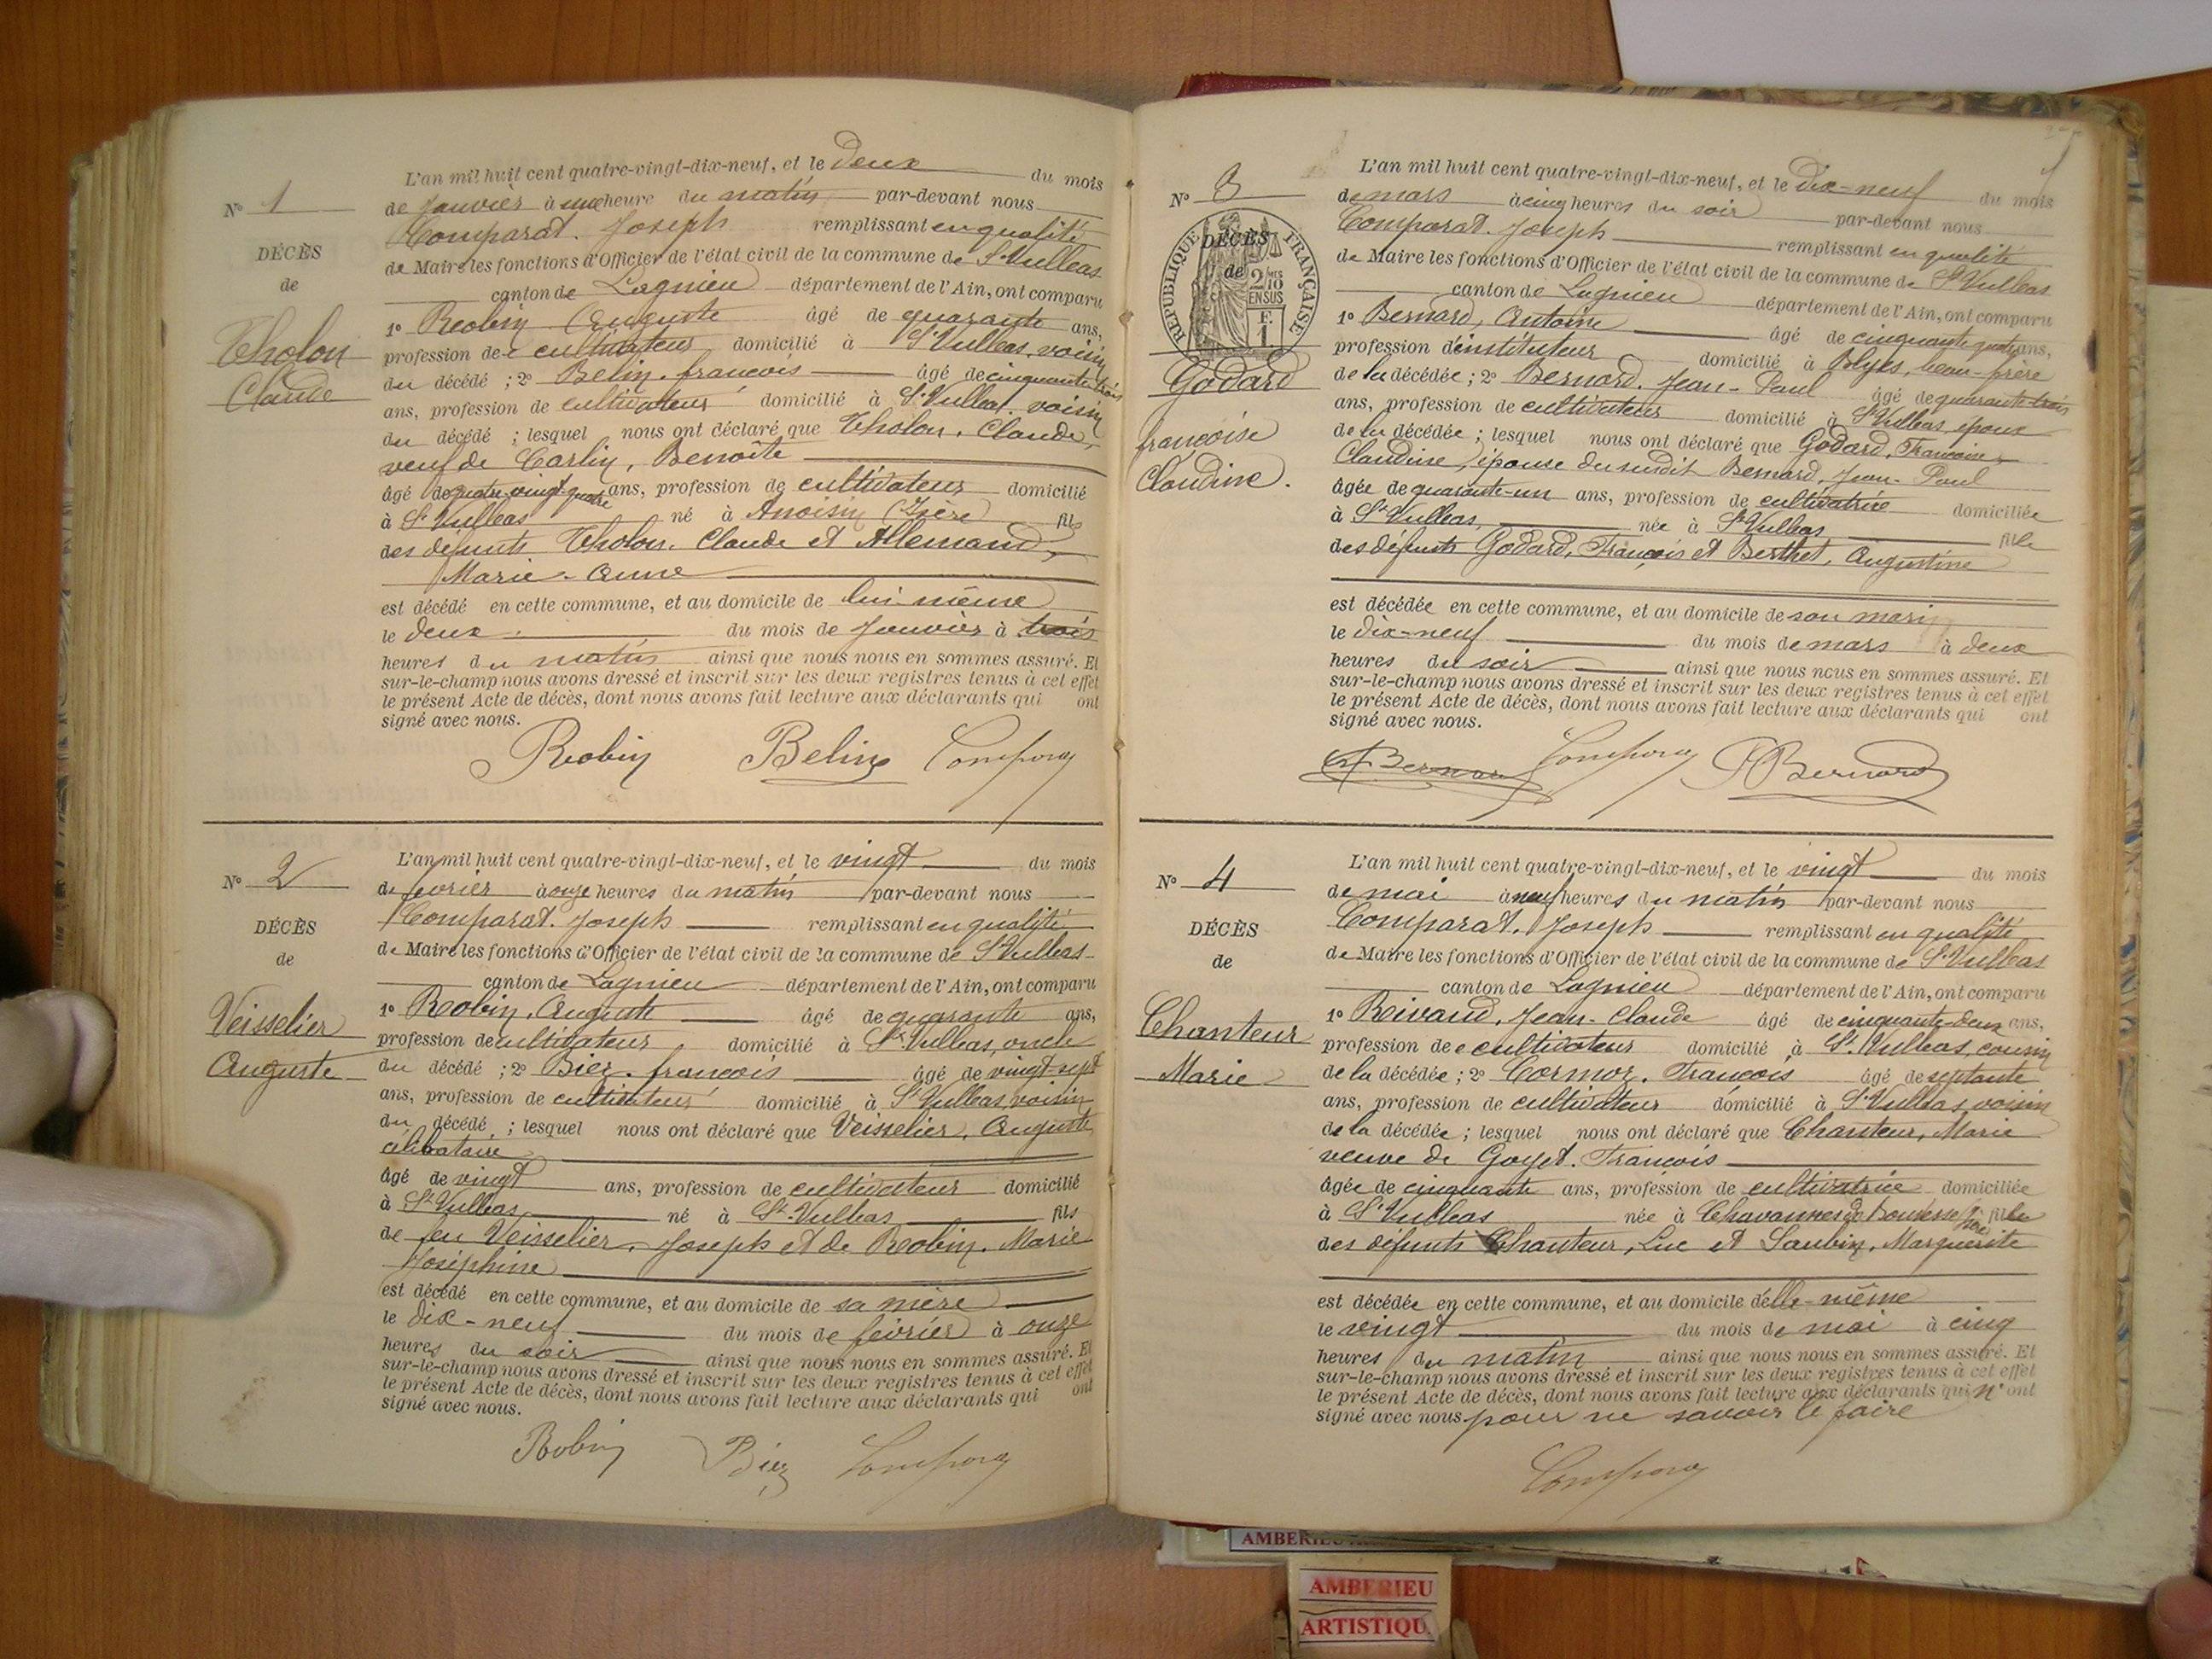 N° 1
DÉCÈS
de
Tholon
Claude
L'an mil huit cent quatre-vingt-dix-neuf, et le deux du mois
de janvier à une heure du matin par-devant nous
Comparat. Joseph remplissant en qualité
de Maire les fonctions d'Officier de l'état civil de la commune de St Vulbas
canton de Lagnieu département de l'Ain, ont comparu
1° Robin Auguste âgé de quarante ans,
profession de cultivateur domicilié à St Vulbas, voisin
du décédé ; 2° Belin. françois âgé de cinquante-trois
ans, profession de cultivateur domicilié à St Vulbas. voisin
du décédé ; lesquel nous ont déclaré que Tholon. Claude,
veuf de Carlin, Benoîte
âgé de quatre-vingt-quatre ans, profession de cultivateur domicilié
à St Vulbas né à Anoisin (Isère) fils
des défunts Tholon. Claude et Allemand,
Marie-Anne
est décédé en cette commune, et au domicile de lui-même
le deux du mois de janvier à trois
heures du matin ainsi que nous nous en sommes assuré. Et
sur-le-champ nous avons dressé et inscrit sur les deux registres tenus à cet effet
le présent Acte de décès, dont nous avons fait lecture aux déclarants qui ont
signé avec nous.
Robin Belin Comparat
N° 2
DÉCÈS
de
Veisselier
Auguste
L'an mil huit cent quatre-vingt-dix-neuf, et le vingt du mois
de fevrier à onze heures du matin par-devant nous
Comparat. Joseph remplissant en qualité
de Maire les fonctions d'Officier de l'état civil de la commune de St Vulbas
canton de Lagnieu département de l'Ain, ont comparu
1° Robin. Auguste âgé de quarante ans,
profession de cultivateur domicilié à St Vulbas, oncle
du décédé ; 2° Biez. françois âgé de vingt-sept
ans, profession de cultivateur domicilié à St Vulbas, voisin
du décédé ; lesquel nous ont déclaré que Veisselier. Auguste
célibataire
âgé de vingt ans, profession de cultivateur domicilié
à St Vulbas né à St-Vulbas fils
de feu Veisselier. Joseph et de Robin. Marie
Joséphine
est décédé en cette commune, et au domicile de sa mère
le dix-neuf du mois de février à onze
heures du soir ainsi que nous nous en sommes assuré. Et
sur-le-champ nous avons dressé et inscrit sur les deux registres tenus à cet effet
le présent Acte de décès, dont nous avons fait lecture aux déclarants qui ont
signé avec nous.
Robin Biez Comparat
N° 3
RÉPUBLIQUE FRANÇAISE
2/10 EN SUS
F. 1
DÉCÈS
de
Godard
françoise
Claudine.
L'an mil huit cent quatre-vingt-dix-neuf, et le dix-neuf du mois
de mars à cinq heures du soir par-devant nous
Comparat. Joseph remplissant en qualité
de Maire les fonctions d'Officier de l'état civil de la commune de St Vulbas
canton de Lagnieu département de l'Ain, ont comparu
1° Bernard, Antoine âgé de cinquante-quatre ans,
profession d'instituteur domicilié à Blyes, beau-frère
de la décédée ; 2° Bernard. Jean-Paul âgé de quarante-trois
ans, profession de cultivateur domicilié à St Vulbas, époux
de la décédée ; lesquel nous ont déclaré que Godard, Francoise,
Claudine, épouse du susdit Bernard, Jean-Paul
âgée de quarante-un ans, profession de cultivatrice domiciliée
à St Vulbas, née à St Vulbas fille
des défunts Godard, François et Berthet, Augustine
est décédée en cette commune, et au domicile de son mari
le dix-neuf du mois de mars à deux
heures du soir ainsi que nous nous en sommes assuré. Et
sur-le-champ nous avons dressé et inscrit sur les deux registres tenus à cet effet
le présent Acte de décès, dont nous avons fait lecture aux déclarants qui ont
signé avec nous.
Bernard Comparat Bernard
N° 4
DÉCÈS
de
Chanteur
Marie
L'an mil huit cent quatre-vingt-dix-neuf, et le vingt du mois
de mai à neuf heures du matin par-devant nous
Comparat. Joseph remplissant en qualité
de Maire les fonctions d'Officier de l'état civil de la commune de St Vulbas
canton de Lagnieu département de l'Ain, ont comparu
1° Rivaud, Jean-Claude âgé de cinquante-deux ans,
profession de cultivateur domicilié à St. Vulbas, cousin
de la décédée ; 2° Cormoz. François âgé de septante
ans, profession de cultivateur domicilié à St Vulbas voisin
de la décédée ; lesquel nous ont déclaré que Chanteur, Marie
veuve de Goyet. François
âgée de cinquante ans, profession de cultivatrice domiciliée
à St Vulbas née à fille
des défunts Chanteur, Luc et Saubin, Marguerite
est décédée en cette commune, et au domicile d'elle-même
le vingt du mois de mai à cinq
heures du matin ainsi que nous nous en sommes assuré. Et
sur-le-champ nous avons dressé et inscrit sur les deux registres tenus à cet effet
le présent Acte de décès, dont nous avons fait lecture aux déclarants qui n'ont
signé avec nous pour ne savoir le faire
Comparat
AMBERIEU
AMBERIEU
ARTISTIQU